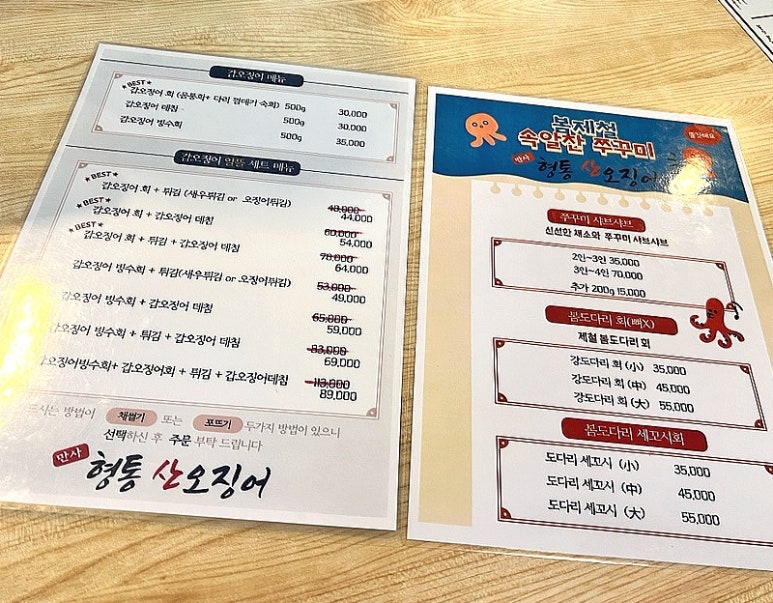 갑오징어 메뉴
★BEST★
갑오징어 회 (몸통회+ 다리 껍데기 숙회) 500g 30,000
갑오징어 데침 500g 30,000
갑오징어 빙수회 500g 35,000
갑오징어 알뜰 세트 메뉴
★BEST★
갑오징어 회 + 튀김 (새우튀김 or 오징어튀김) 48,000 44,000
★BEST★
갑오징어 회 + 갑오징어 데침 60,000 54,000
★BEST★
갑오징어 회 + 튀김 + 갑오징어 데침 78,000 64,000
갑오징어 빙수회 + 튀김(새우튀김 or 오징어튀김) 53,000 49,000
갑오징어 빙수회 + 갑오징어 데침 65,000 59,000
갑오징어 빙수회 + 튀김 + 갑오징어 데침 83,000 69,000
갑오징어빙수회+ 갑오징어회 + 튀김 + 갑오징어데침 89,000
드시는 방법이 채썰기 또는 포뜨기 두가지 방법이 있으니
선택하신 후 주문 부탁 드립니다
만사 형통 산오징어
봄제철
속알찬 쭈꾸미
만사 형통 산오징어
쭈꾸미 샤브샤브
신선한 채소와 쭈꾸미 샤브샤브
2인~3인 35,000
3인~4인 70,000
추가 200g 15,000
봄도다리 회(뼈X)
제철 봄도다리 회
강도다리 회 (小) 35,000
강도다리 회 (中) 45,000
강도다리 회 (大) 55,000
봄도다리 세꼬시회
도다리 세꼬시 (小) 35,000
도다리 세꼬시 (中) 45,000
도다리 세꼬시 (大) 55,000